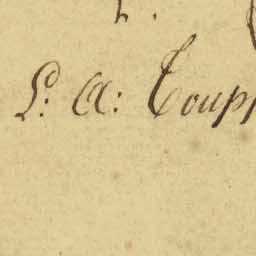 L: A: Toupp